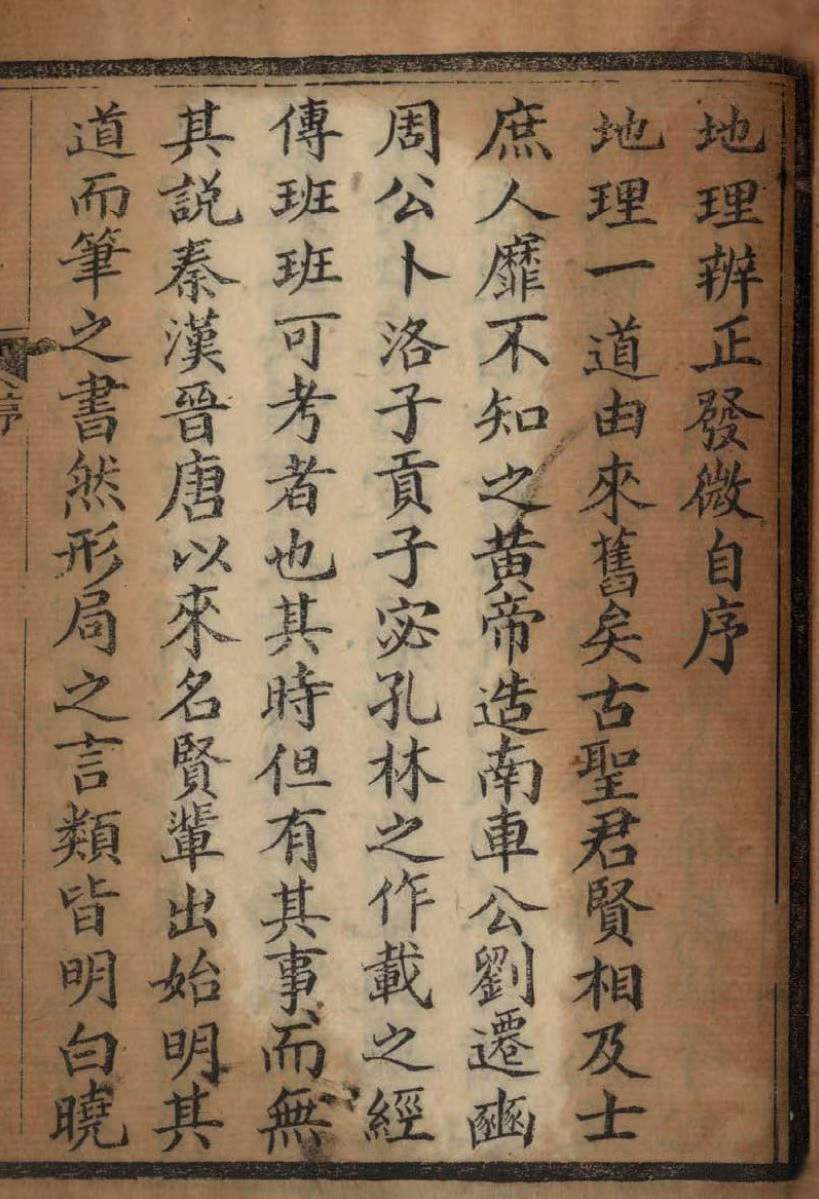 地理辨正發微自序
地理一道由來舊矣古聖君賢相及士
庶人靡不知之黃帝造南車公劉遷豳
周公卜洛子貢子宓孔林之作載之經
傳班班可考者也其時但有其事而無
其說秦漢晉唐以來名賢輩出始明其
道而筆之書然形局之言類皆明白曉
序